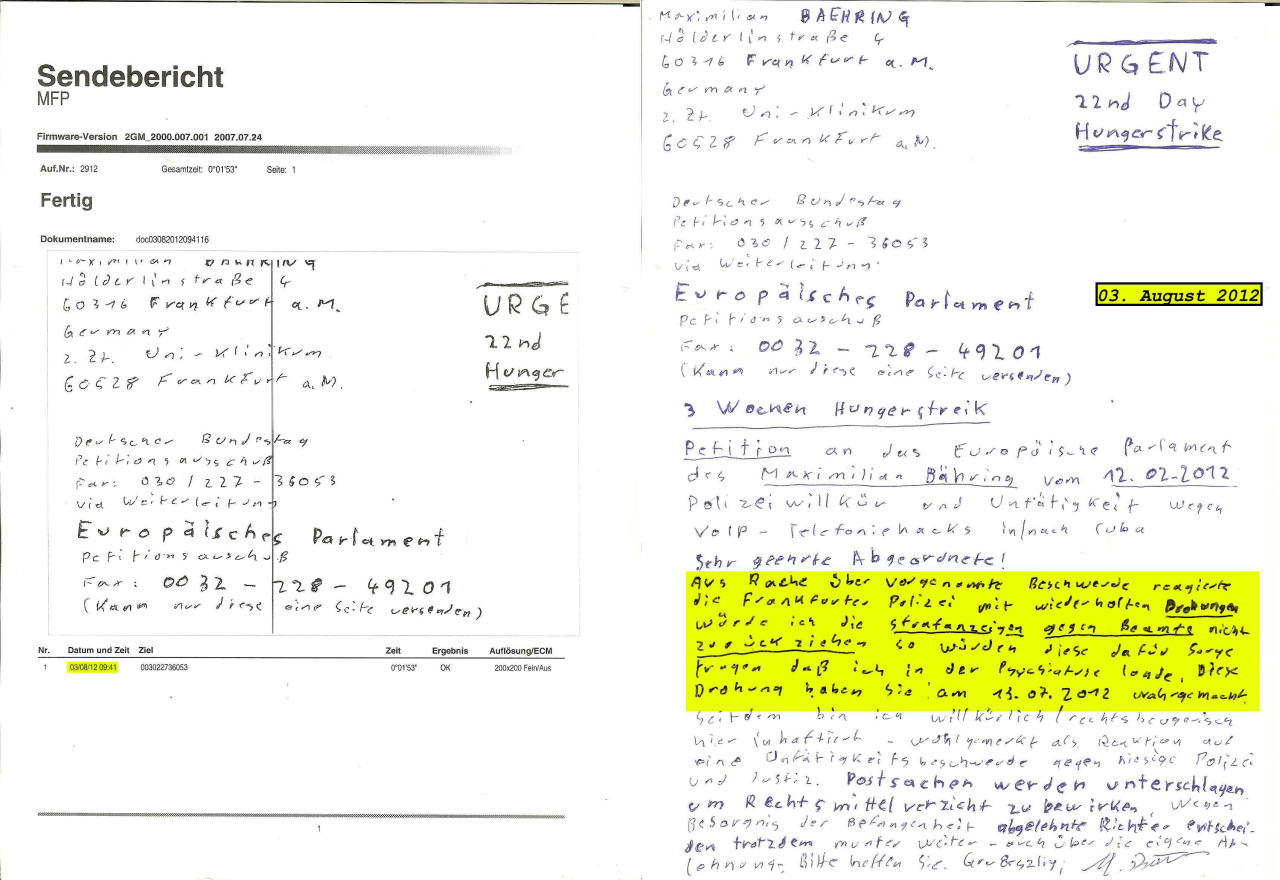 Sendebericht
MFP
Firmware-Version 2GM_2000.007.001 2007.07.24
Auf.Nr.: 2912 Gesamtzeit: 0°01'53" Seite: 1
Fertig
Dokumentname: doc03082012094116
Maximilian BAEHRING
Hölderlinstraße 4
60316 Frankfurt a.M.
Germany
z. Zt. Uni-Klinikum
60528 Frankfurt a.M.
URGE
22nd
Hunger
Deutscher Bundestag
Petitionsausschuß
Fax: 030 / 227 - 36053
via Weiterleitung
Europäisches Parlament
Petitionsauschuß
Fax: 0032 - 228 - 49201
(Kann nur diese eine Seite versenden)
Nr. Datum und Zeit Ziel Zeit Ergebnis Auflösung/ECM
1 03/08/12 09:41 003022736053 0°01'53" OK 200x200 Fein/Aus
1
Maximilian BAEHRING
Hölderlinstraße 4
60316 Frankfurt a.M.
Germany
z. Zt. Uni-Klinikum
60528 Frankfurt a.M.
URGENT
22nd Day
Hungerstrike
Deutscher Bundestag
Petitionsausschuß
Fax: 030 / 227 - 36053
via Weiterleitung:
Europäisches Parlament
03. August 2012
Petitionsauschuß
Fax: 0032 - 228 - 49201
(Kann nur diese eine Seite versenden)
3 Wochen Hungerstreik
Petition an das Europäische Parlament
des Maximilian Bähring vom 12.02-2012
Polizeiwillkür und Untätigkeit wegen
VoIP-Telefoniehacks in/nach Cuba
Sehr geehrte Abgeordnete!
Aus Rache über vorgenannte Beschwerde reagierte
die Frankfurter Polizei mit wiederholten Drohungen
würde ich die strafanzeigen gegen Beamte nicht
zurück ziehen so würden diese dafür Sorge
tragen daß ich in der Psychiatrie lande. Diese
Drohung haben Sie am 13.07.2012 wahrgemacht.
Seitdem bin ich willkürlich/rechtsbeugerisch
hier inhaftiert - wohlgemerkt als Reaktion auf
eine Untätigkeitsbeschwerde gegen hiesige Polizei
und Justiz. Postsachen werden unterschlagen
um Rechtsmittelverzicht zu bewirken. Wegen
Besorgnis der Befangenheit abgelehnte Richter entschei-
den trotzdem munter weiter - auch über die eigene Ab-
lehnung. Bitte helfen Sie.